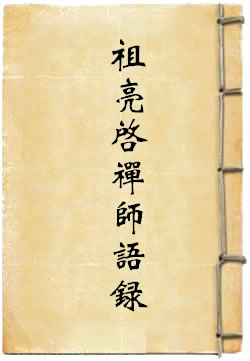 祖亮啓禪師語錄